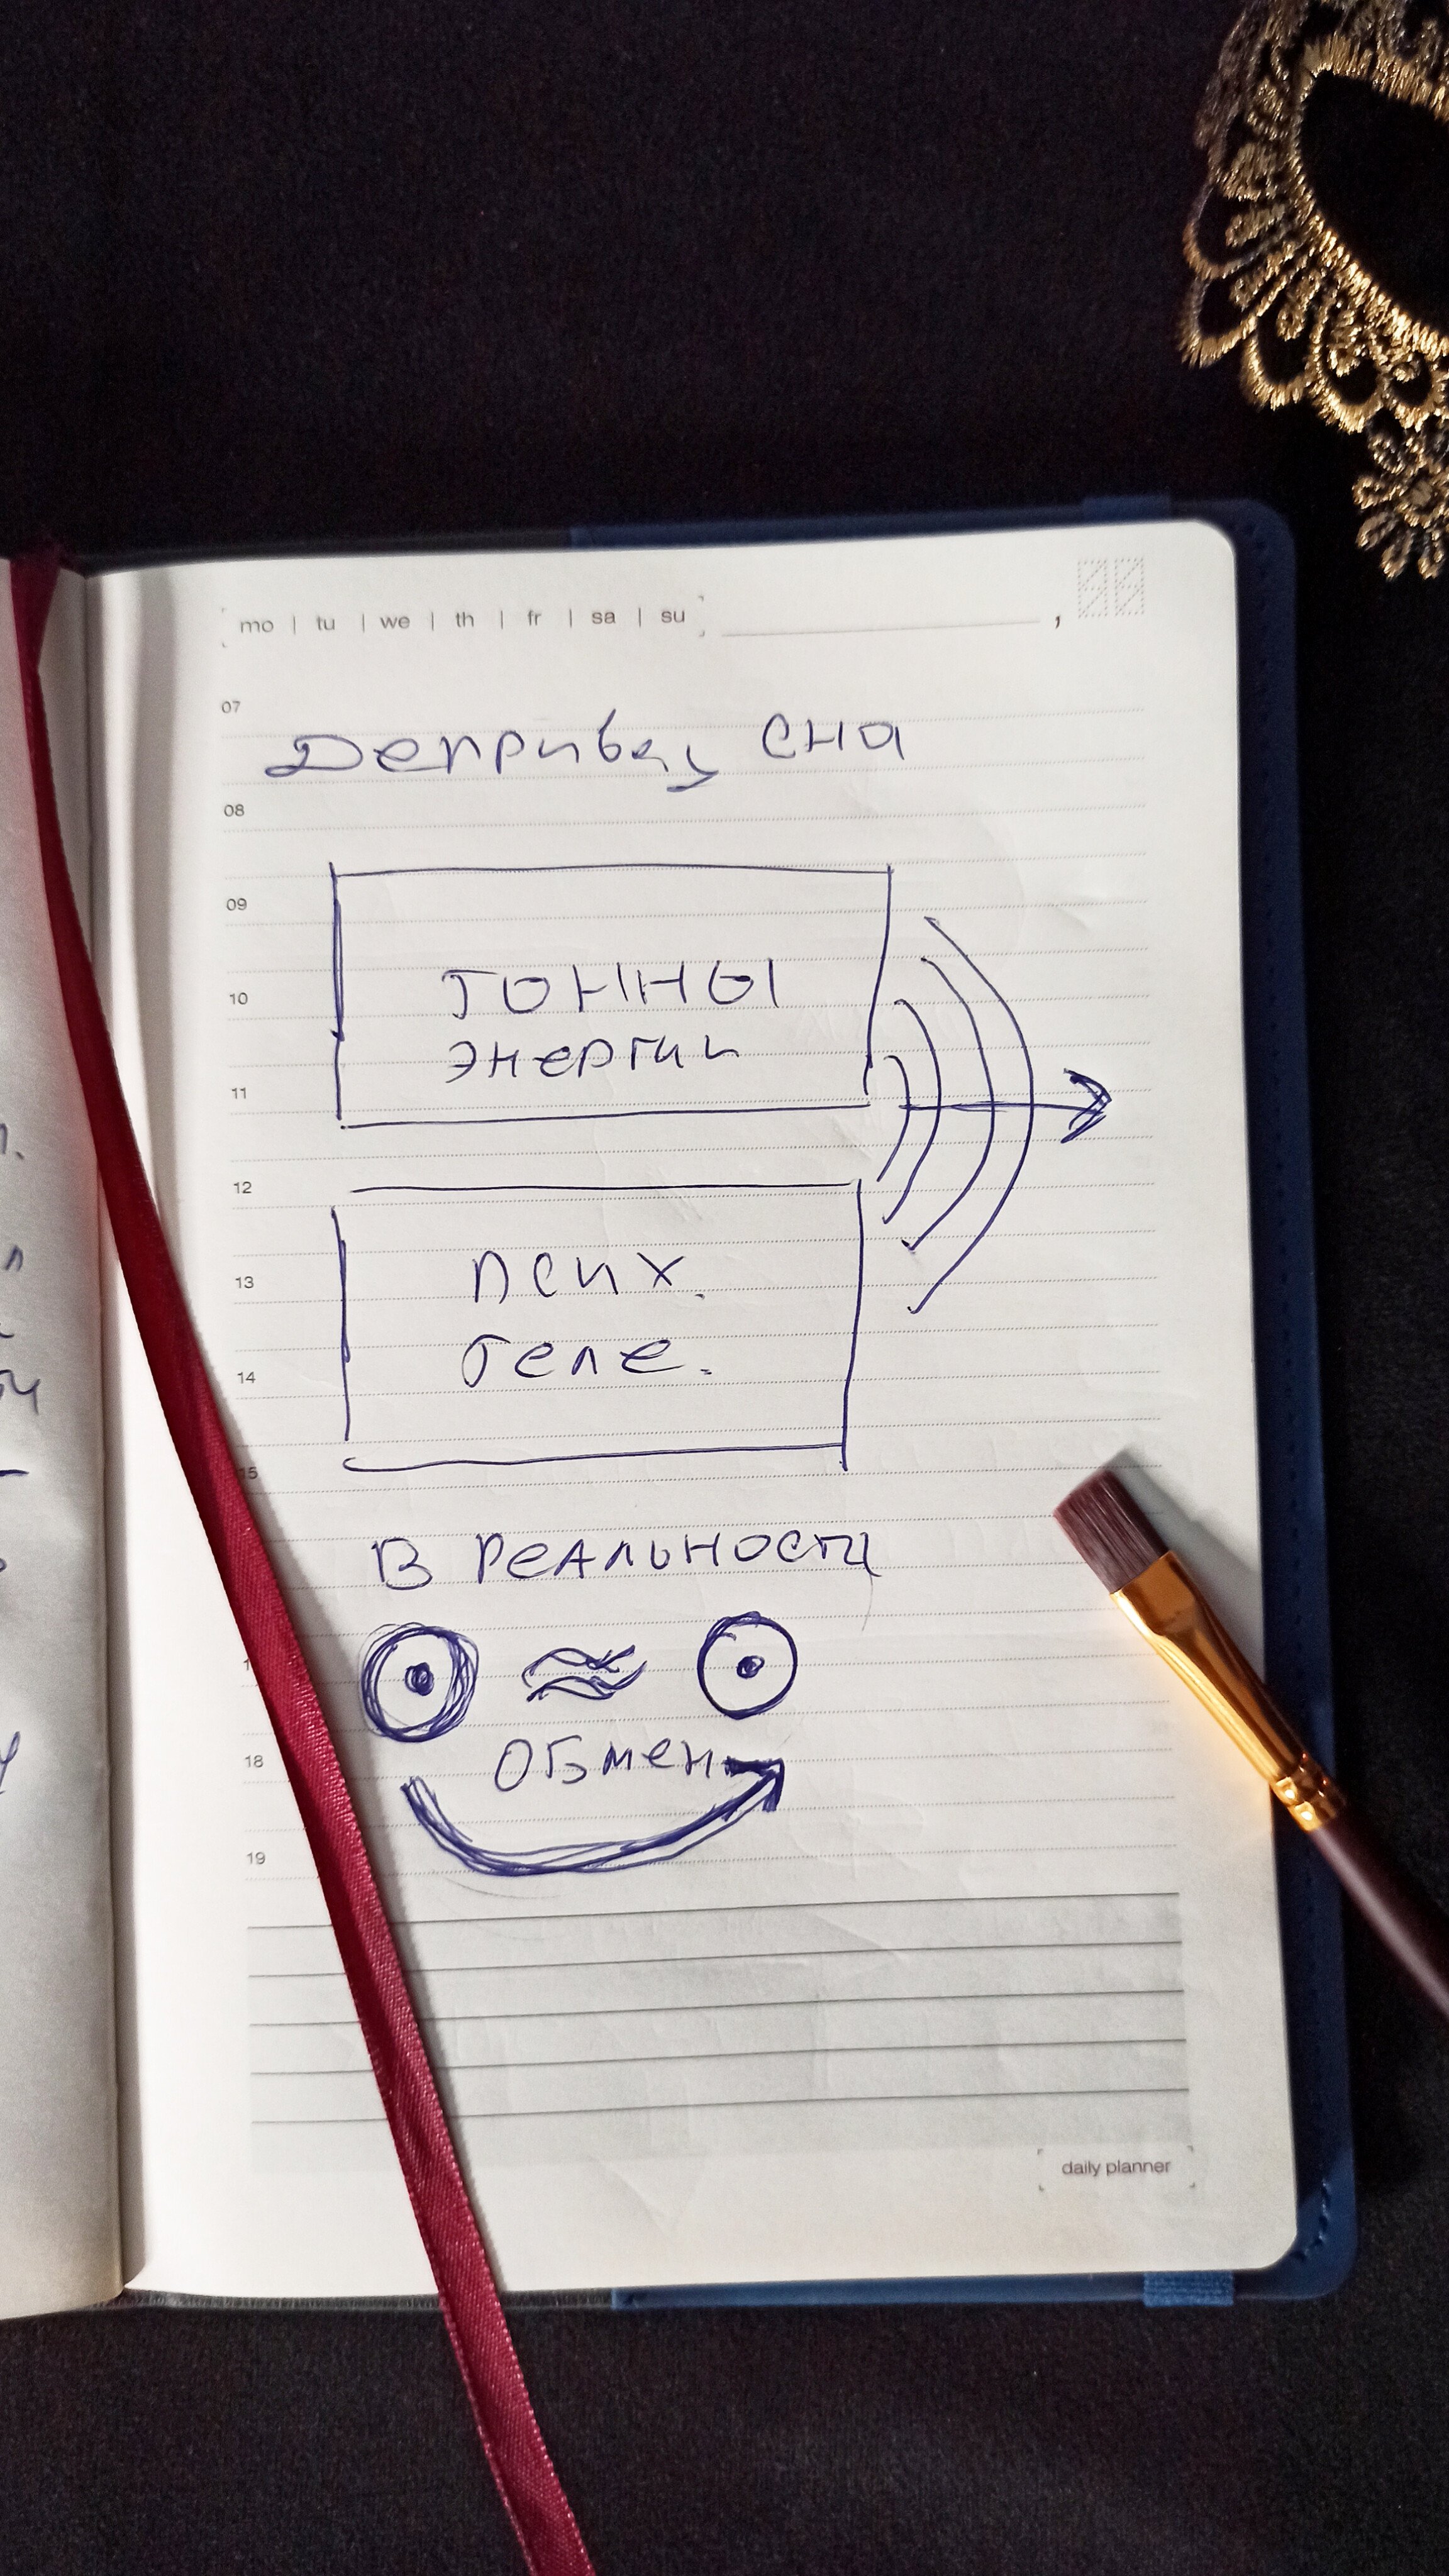 mo | tu | we | th | fr | sa | su ,
07
Депривац сна
08
09
тонны
10
энергии
11
12
псих.
13
теле.
14
15
В реальности
≈
Обмен
18
19
daily planner